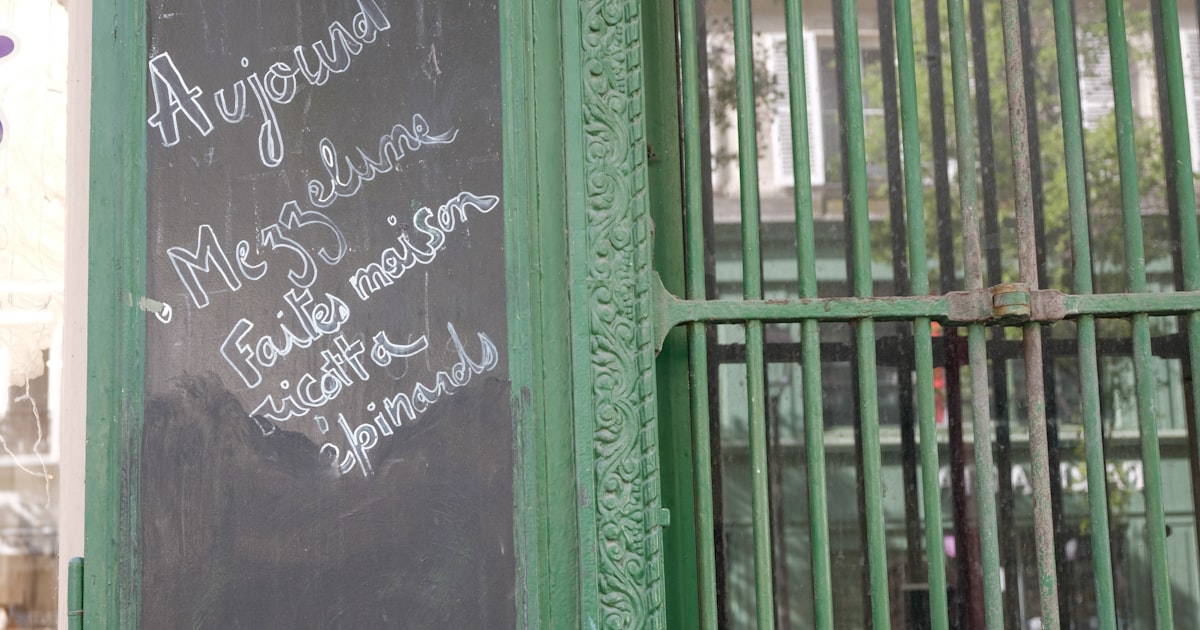 Aujourd
Mezzelune
Faites maison
ricotta
épinards